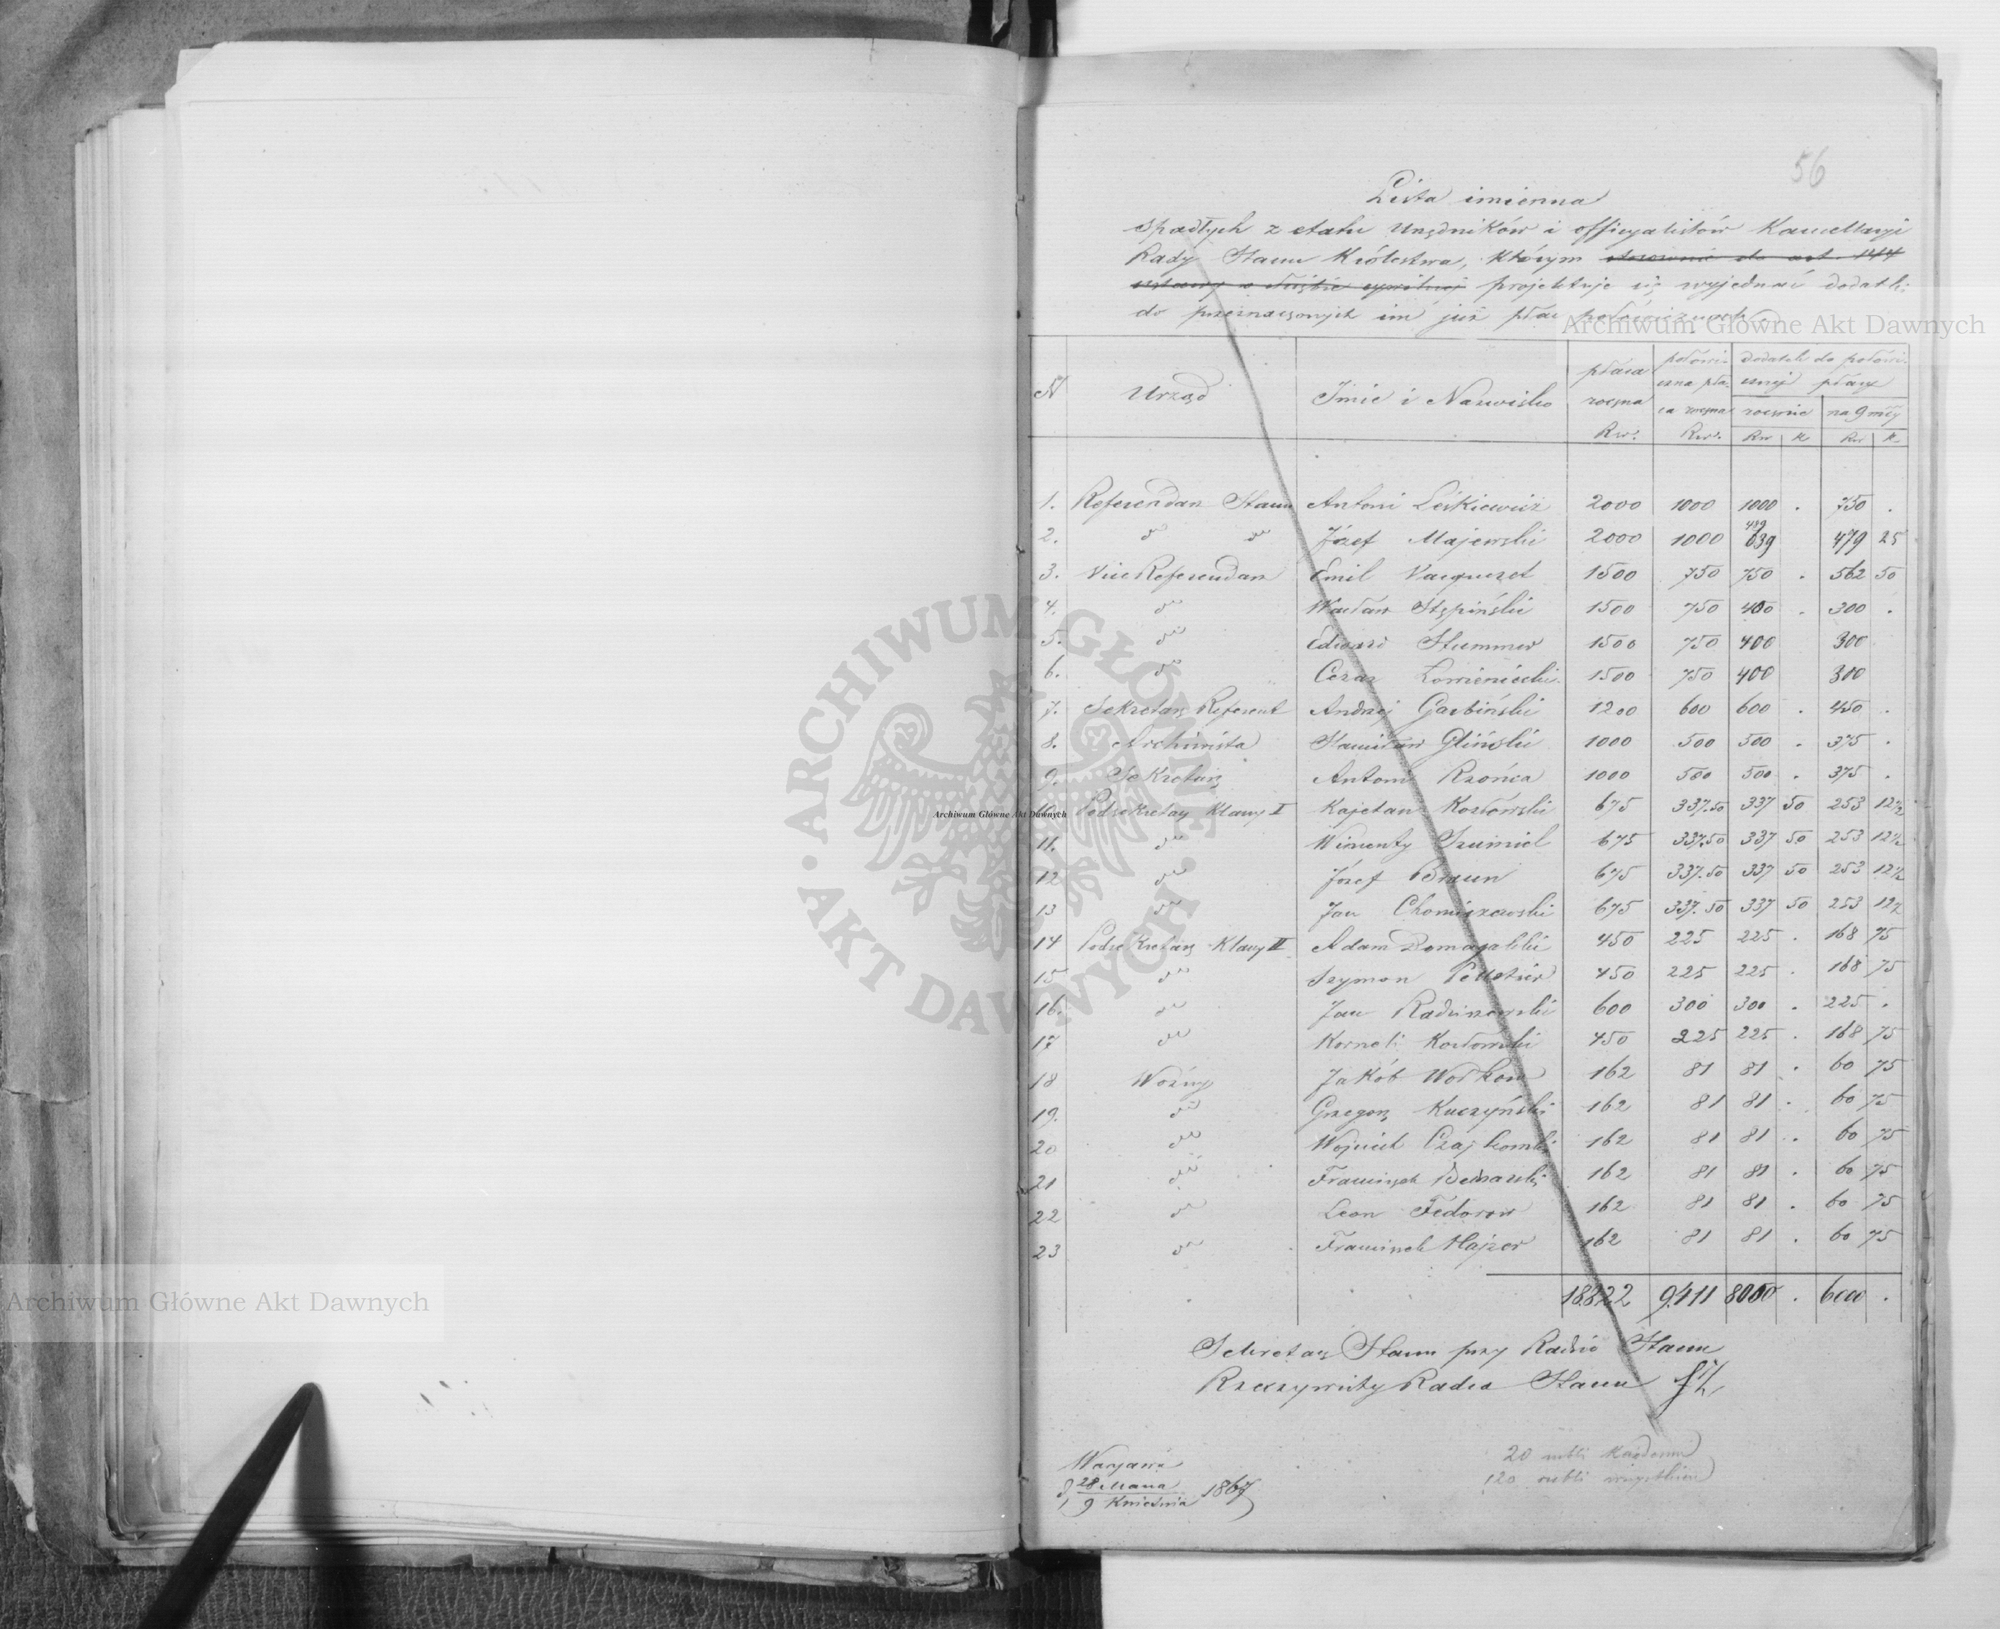 56
Lista imienna
spadłych z etatu Urzędników i officyalistów Kancellaryi
Rady Stanu Królestwa, którym stosownie do art. 144
ustawy o służbie cywilnej projektuje się wyjednać dodatki
do przeznaczonych im już płac połowicznych.
Archiwum Główne Akt Dawnych
N Urząd Imie i Nazwisko płaca roczna Rsr. połowiczna płaca roczna Rsr. dodatek do połowicznej płacy rocznie Rsr K na 9 mcy Rsr K
1. Referendarz Stanu Antoni Leśkiewicz 2000 1000 1000 . 750 .
2. do do Józef Majewski 2000 1000 639 479 25
3. Vice Referendarz Emil Vacqueret 1500 750 750 . 562 50
4. do Wacław Stępiński 1500 750 400 . 300 .
5. do Edward Stummer 1500 750 400 300
6. do Cezar 1500 750 400 300
7. Sekretarz Referent Andrzej Garbiński 1200 600 600 . 450 .
8. Archiwista Stanisław Gliński 1000 500 500 . 375 .
9. Sekretarz Antoni Rzońca 1000 500 500 . 375 .
10. Podsekretarz Klassy I Kajetan Kozłowski 675 337.50 337 50 253 12½
11. do Wincenty Szumiel 675 337.50 337 50 253 12½
12 do Józef Braun 675 337.50 337 50 253 12½
13 do Jan Chomiczewski 675 337.50 337 50 253 12½
14 Podsekretarz Klassy II Adam Domagalski 450 225 225 . 168 75
15 do Szymon Pelletier 450 225 225 . 168 75
16. do Jan Radziszewski 600 300 300 . 225 .
17 do Korneli Kozłowski 450 225 225 . 168 75
18 Woźny Jakób Wołkow 162 81 81 . 60 75
19. do Grzegorz Kuczyński 162 81 81 . 60 75
20 do Wojciech Czajkowski 162 81 81 . 60 75
21 do Franciszek Bednarski 162 81 81 . 60 75
22 do Leon Fedorow 162 81 81 . 60 75
23 do Franciszek Hajzer 162 81 81 . 60 75
18.822 9.411 8000 . 6000 .
Sekretarz Stanu przy Radzie Stanu
Rzeczywisty Radca Stanu
Warszawa
d 28 Marca
9 Kwietnia 1867
20 rubli każdemu
120 rubli wszystkim
ARCHIWUM GŁÓWNE AKT DAWNYCH
Archiwum Główne Akt Dawnych
Archiwum Główne Akt Dawnych